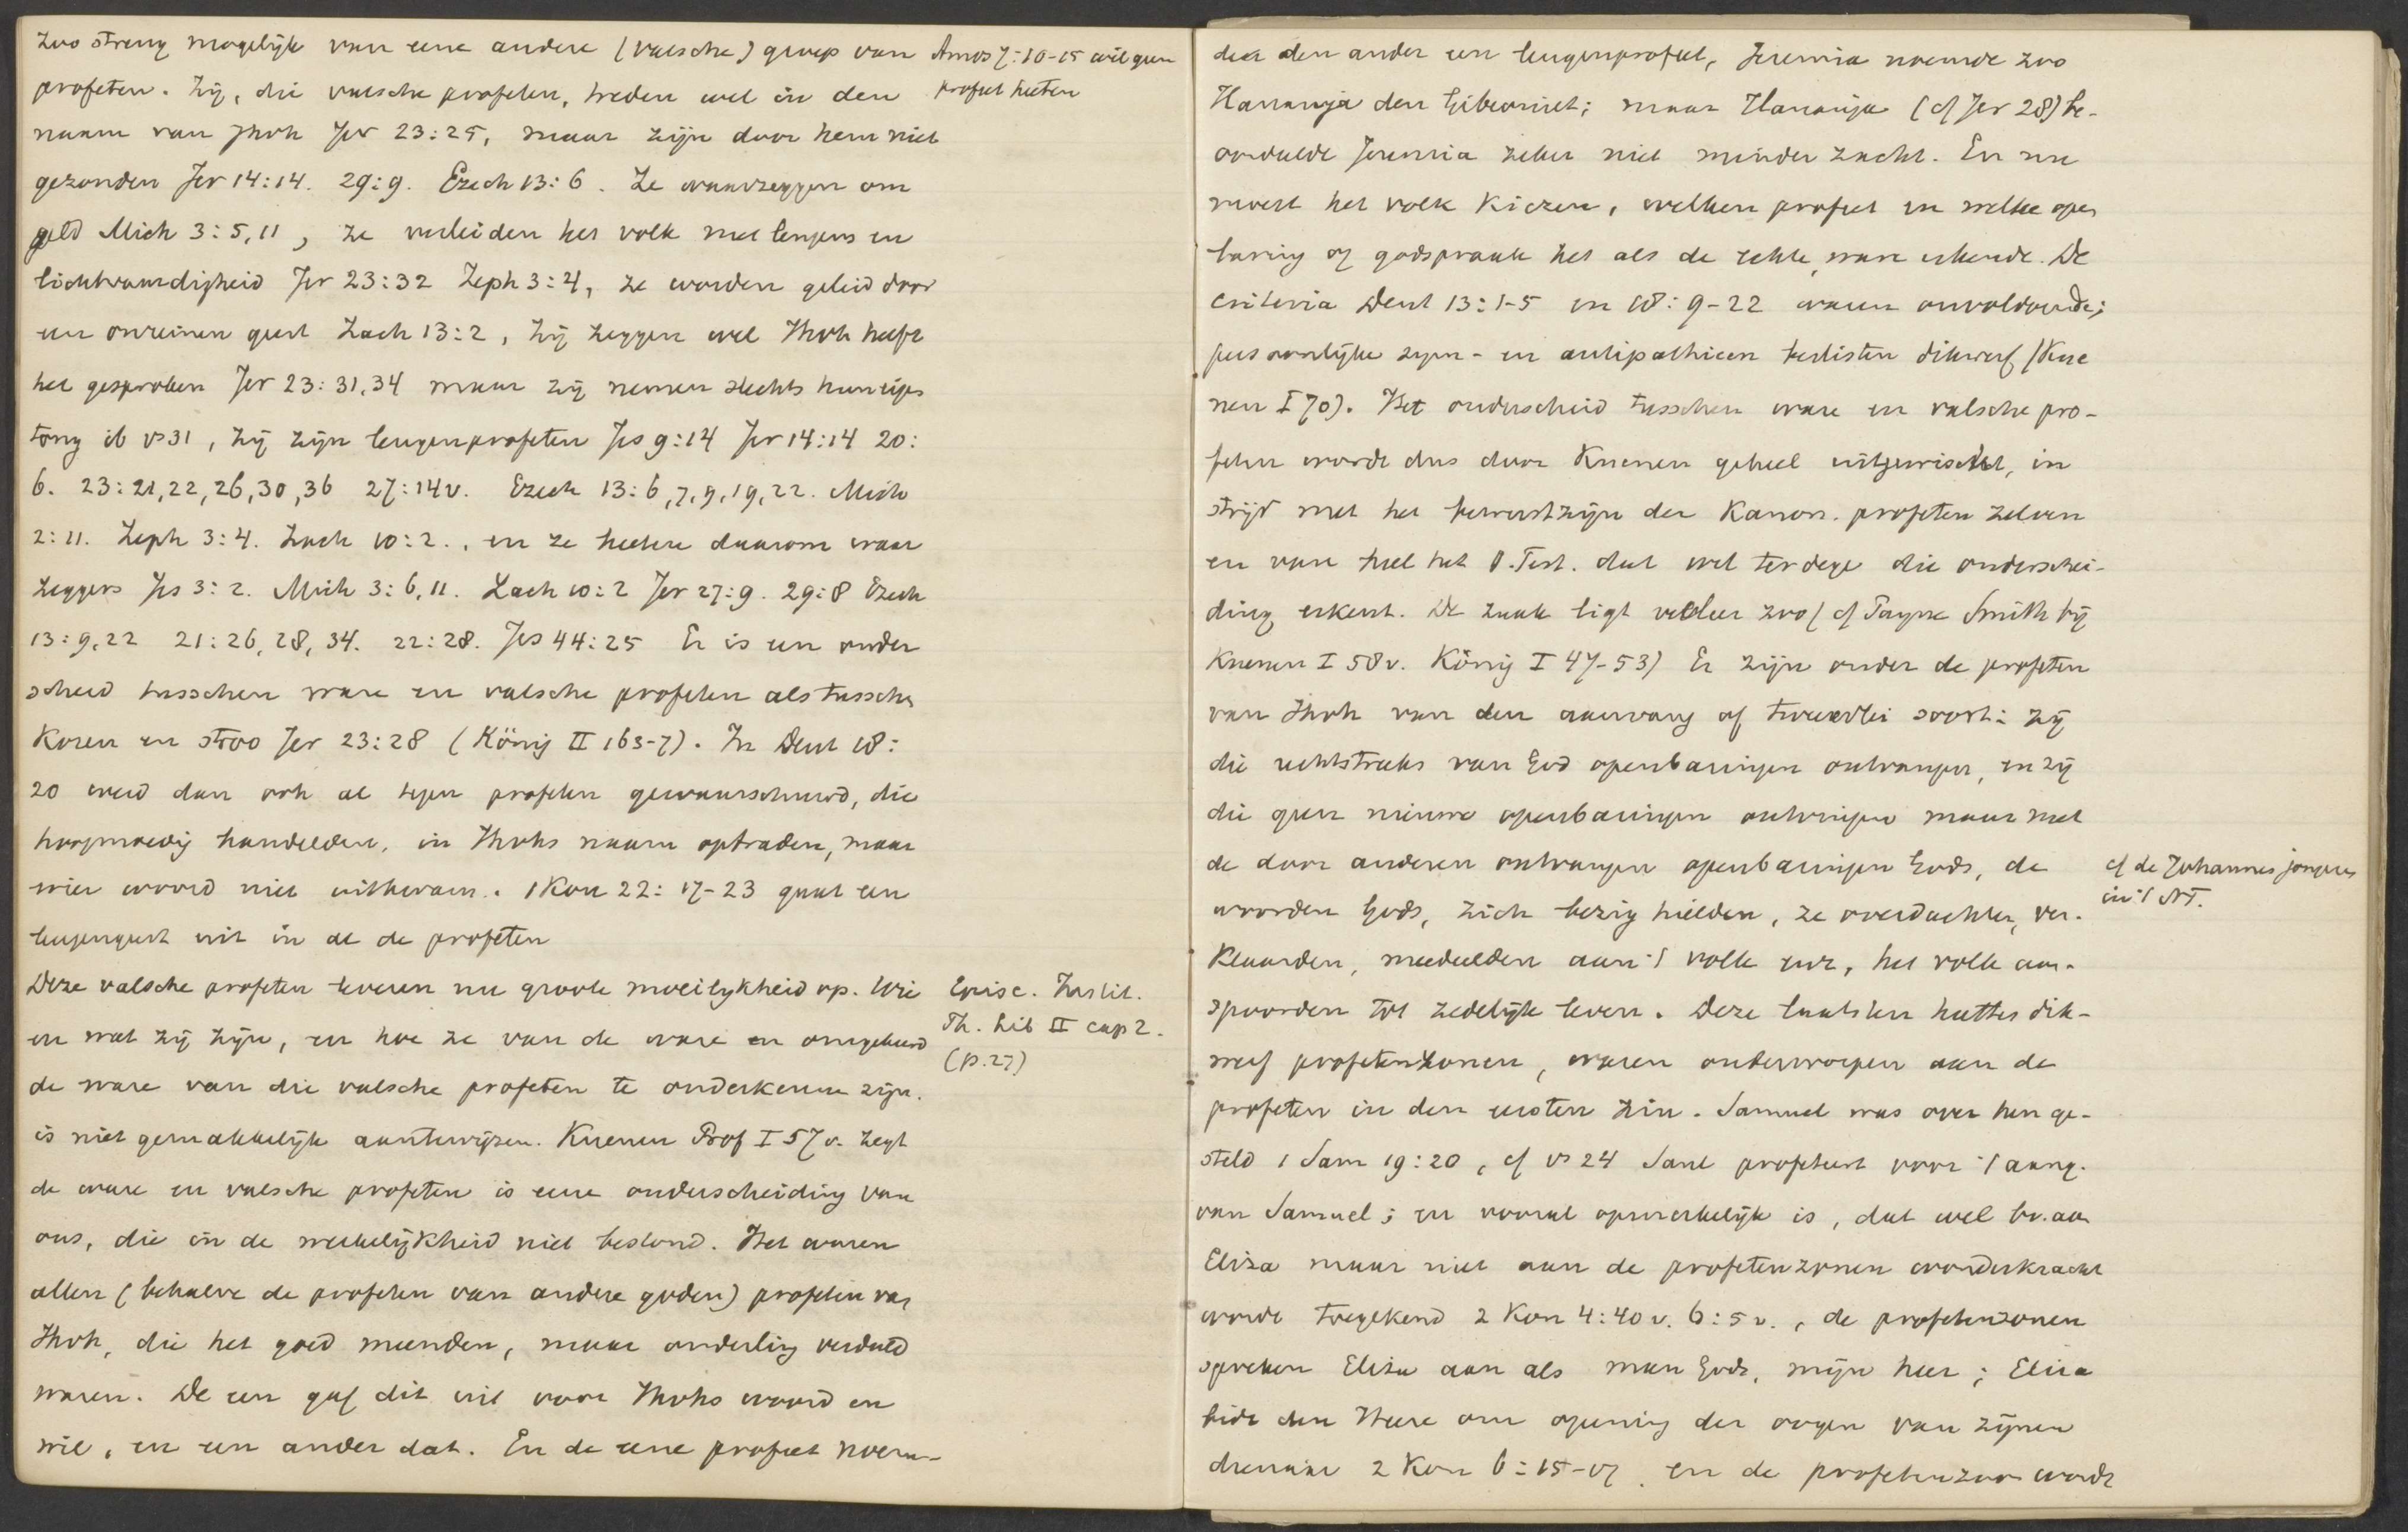 zoo streng mogelijk van eene andere (valsche) groep van
profeten. Zij, die valsche profeten, treden wel in den
naam van Jhvh Jer 23:25, maar zijn door hem niet
gezonden Jer 14:14. 29:9. Ezech 13:6. Ze waarzeggen om
geld Mich 3:5,11, ze verleiden het volk met leugens en
lichtvaardigheid Jer 23:32 Zeph 3:4, ze worden geleid door
een onreinen geest Zach 13:2, zij zeggen wel Jhvh heeft
het gesproken Jer 23:31,34 maar zij nemen slechts hun eigen
tong ib vs 31, zij zijn leugenprofeten Jes 9:14 Jer 14:14 20:
6. 23:21,22,26,30,36 27:14v. Ezech 13:6,7,9,19,22. Mich
2:11. Zeph 3:4. Zach 10:2., en ze heeten daarom waar
zeggers Jes 3:2. Mich 3:6,11. Zach 10:2 Jer 27:9. 29:8 Ezech
13:9,22 21:26,28,34. 22:28. Jes 44:25 Er is een onder
scheid tusschen ware en valsche profeten als tusschen
Koren en stroo Jer 23:28 (König II 163-7). In Deut 18:
20 werd dan ook al tegen profeten gewaarschuwd, die
hoogmoedig handelden, in Jhvhs naam optraden, maar
wier woord niet uitkwam. 1 Kon 22:17-23 gaat een
leugengeest uit in al de profeten
Deze valsche profeten leveren nu groote moeilijkheid op. Wie
en wat zij zijn, en hoe ze van de ware en omgekeerd
de ware van die valsche profeten te onderkennen zijn.
is niet gemakkelijk aantewijzen. Kuenen Prof I 57v. zegt
de ware en valsche profeten is eene onderscheiding van
ons, die in de werkelijkheid niet bestond. Het waren
allen (behalve de profeten van andere goden) profeten van
Jhvh, die het goed meenden, maar onderling verdeeld
waren. De een gaf dit uit voor Jhvhs woord en
wil, en een ander dat. En de eene profeet noem-
Amos 7:10-15 wil geen
profeet heeten
Episc. Instit.
Th. Lib II cap 2.
(p. 27)
den den ander een leugenprofeet, Jeremia noemde zoo
Hananja den Gibeoniet; maar Hananja (cf Jer 28) be-
oordeelde Jeremia zeker niet minder zacht. En nu
moest het volk Kiezen, welken profeet en welke open
baring of godspraak het als de echte, ware erkende. De
criteria Deut 13:1-5 en 18:9-22 waren onvoldoende;
persoonlijke sym- en antipathieen beslisten dikwerf (Kue
nen I 70). Het onderscheid tusschen ware en valsche pro-
feten wordt dus door Kuenen geheel uitgewischt, in
strijd met het bewustzijn der Kanon. profeten zelven
en van heel het O. Test. dat wel terdege die onderschei-
ding erkent. De zaak ligt veeleer zoo (cf Payne Smith bij
Kuenen I 58v. König I 47-53) Er zijn onder de profeten
van Jhvh van den aanvang af tweeërlei soort: zij
die rechtstreeks van God openbaringen ontvangen, en zij
die geen nieuwe openbaringen ontvingen maar met
de door anderen ontvangen openbaringen Gods, de
woorden Gods, zich bezig hielden, ze overdachten, ver-
klaarden, meedeelden aan 't volk enz, het volk aan-
spoorden tot zedelijk leven. Deze laatsten heetten dik-
werf profetenzonen, waren onderworpen aan de
profeten in den eersten zin. Samuel was over hen ge-
steld 1 Sam 19:20, cf vs 24 Saul profeteert voor 't aang.
van Samuel; en vooral opmerkelijk is, dat wel bv. aan
Eliza maar niet aan de profetenzonen wonderkracht
wordt toegekend 2 Kon 4:40v. 6:5v., de profetenzonen
spreken Eliza aan als man Gods, mijn heer; Eliza
bidt den Heere om opening der oogen van zijnen
dienaar 2 Kon 6:15-17. en de profetenzoon wordt
cf de Johannes jongeren
in 't NT.